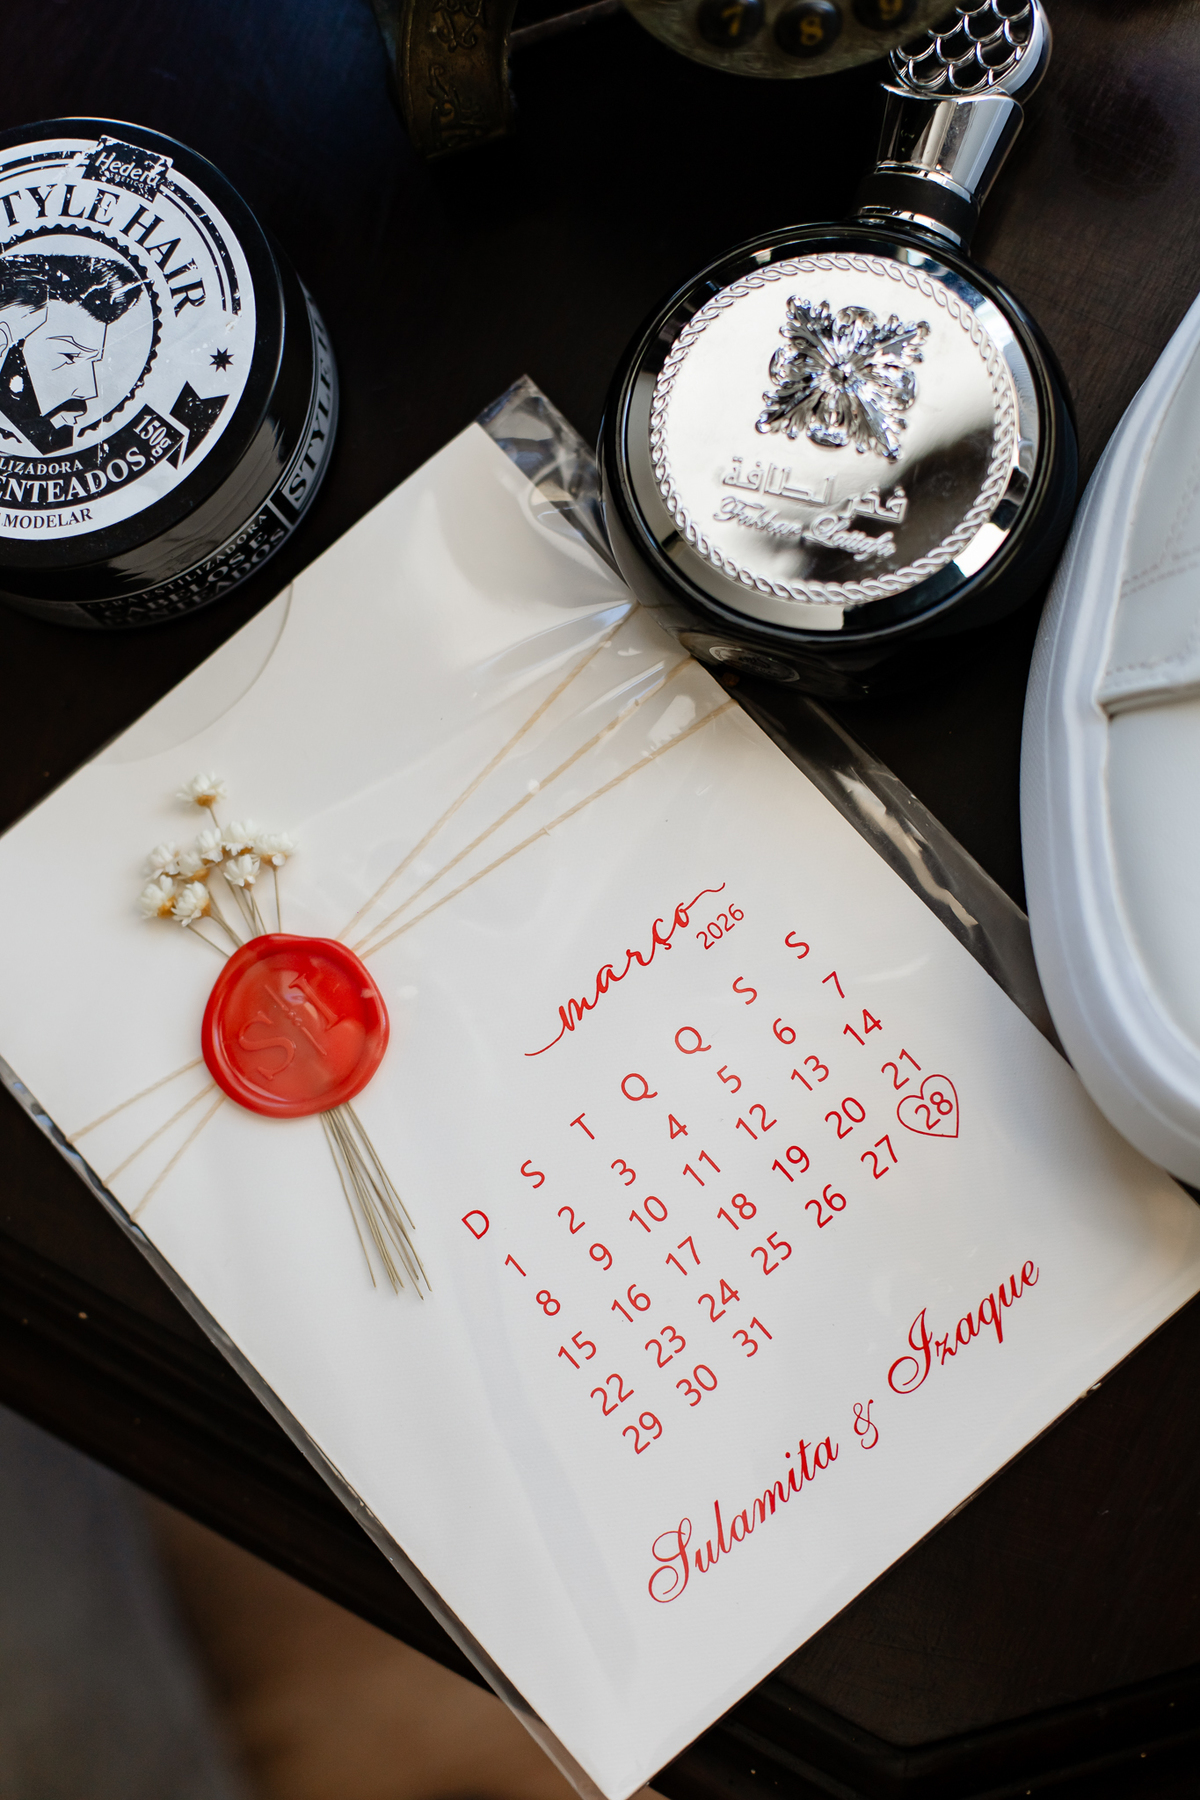 7 8 9
Hedera
COSMÉTICOS
STYLE HAIR
150g
PENTEADOS
MODELAR
STYLE
CERA ESTILIZADORA
CABELOS E
PENTEADOS
فخر لطافة
Fakhar Lattafa
março
2026
D S T Q Q S S
1 2 3 4 5 6 7
8 9 10 11 12 13 14
15 16 17 18 19 20 21
22 23 24 25 26 27 28
29 30 31
S I
Sulamita & Izaque